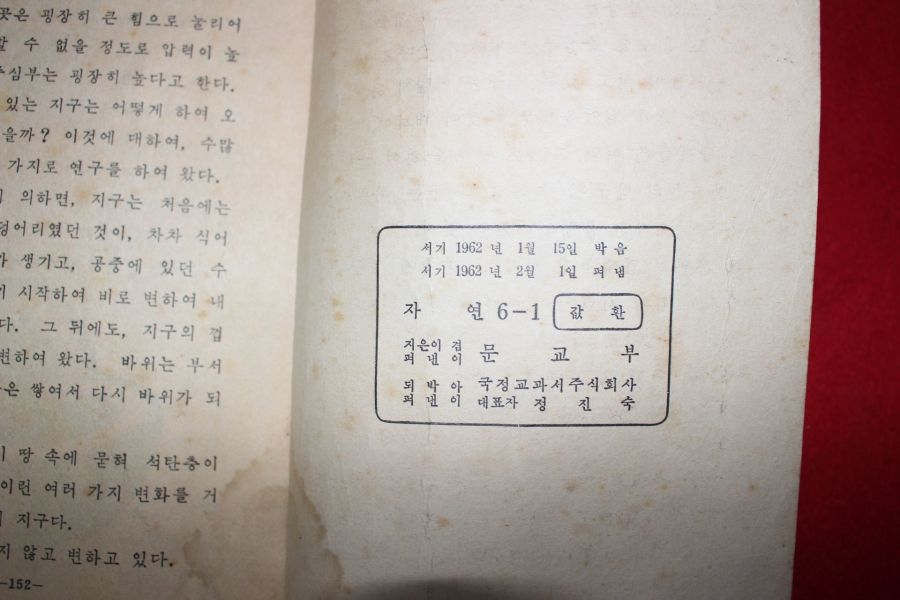 곳은 굉장히 큰 힘으로 눌리어
할 수 없을 정도로 압력이 높
중심부는 굉장히 높다고 한다.
있는 지구는 어떻게 하여 오
을까? 이것에 대하여, 수많
가지로 연구를 하여 왔다.
의하면, 지구는 처음에는
덩어리였던 것이, 차차 식어
가 생기고, 공중에 있던 수
기 시작하여 비로 변하여 내
다. 그 뒤에도, 지구의 껍
변하여 왔다. 바위는 부서
은 쌓여서 다시 바위가 되
땅 속에 묻혀 석탄층이
이런 여러 가지 변화를 거
지구다.
지 않고 변하고 있다.
—152—
서기 1962 년 1월 15일 박음
서기 1962 년 2월 1일 펴냄
자 연 6-1 값 환
지은이 겸
펴낸이 문 교 부
되박아
펴낸이 국정교과서주식회사
대표자 정 진 숙